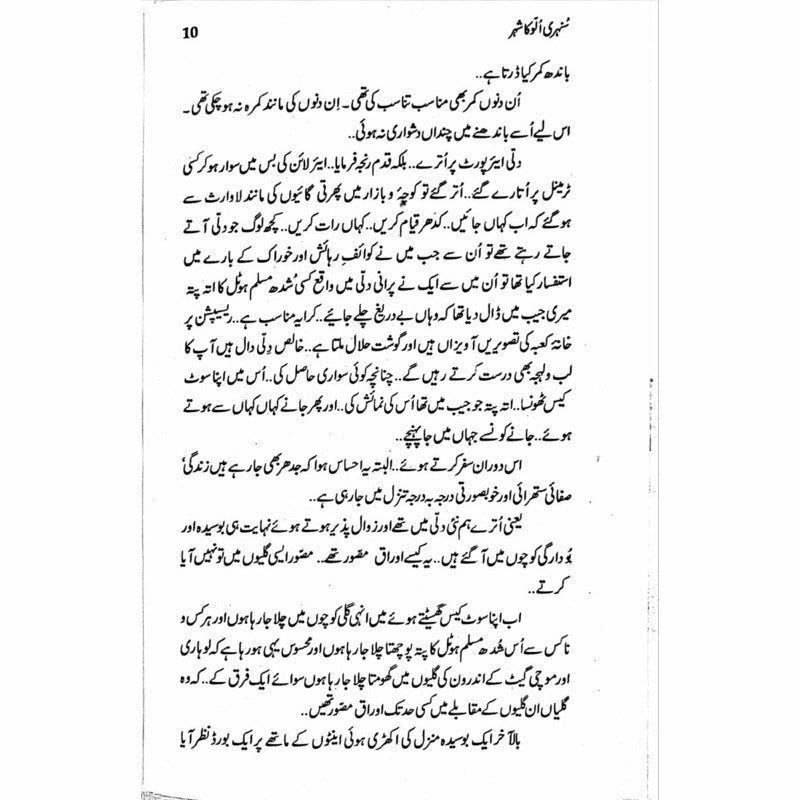 سُنہری اُلّو کا شہر 10
باندھ کمر کیا ڈرتا ہے..
اُن دنوں کمر بھی مناسب تناسب کی تھی۔ اِن دنوں کی مانند کمرہ نہ ہو چکی تھی۔
اس لیے اُسے باندھنے میں چنداں دشواری نہ ہوئی..
دلّی ایئرپورٹ پر اُترے.. بلکہ قدم رنجہ فرمایا.. ایئر لائن کی بس میں سوار ہو کر کسی
ٹرمینل پر اُتارے گئے.. اُتر گئے تو کوچہ و بازار میں پھرتی گائیوں کی مانند لاوارث سے
ہو گئے کہ اب کہاں جائیں.. کدھر قیام کریں.. کہاں رات کریں.. کچھ لوگ جو دلّی آتے
جاتے رہتے تھے تو اُن سے جب میں نے کوائفِ رہائش اور خوراک کے بارے میں
استفسار کیا تھا تو اُن میں سے ایک نے پرانی دلّی میں واقع کسی شُدھ مسلم ہوٹل کا اتہ پتہ
میری جیب میں ڈال دیا تھا کہ وہاں بے دریغ چلے جائیے.. کرایہ مناسب ہے.. ریسیپشن پر
خانۂ کعبہ کی تصویریں آویزاں ہیں اور گوشت حلال ملتا ہے.. خالص دِلّی دال ہیں آپ کا
لب و لہجہ بھی درست کرتے رہیں گے.. چنانچہ کوئی سواری حاصل کی.. اُس میں اپنا سوٹ
کیس ٹھونسا.. اتہ پتہ جو جیب میں تھا اُس کی نمائش کی.. اور پھر جانے کہاں کہاں سے ہوتے
ہوئے.. جانے کونسے جہاں میں جا پہنچے..
اس دوران سفر کرتے ہوئے.. البتہ یہ احساس ہوا کہ جدھر بھی جا رہے ہیں زندگی
صفائی ستھرائی اور خوبصورتی درجہ بہ درجہ تنزل میں جا رہی ہے..
یعنی اُترے ہم نئی دلّی میں تھے اور زوال پذیر ہوتے ہوئے نہایت ہی بوسیدہ اور
بُودار گلی کوچوں میں آ گئے ہیں.. یہ کیسے اوراق مصّور تھے.. مصّور ایسی گلیوں میں تو نہیں آیا
کرتے..
اب اپنا سوٹ کیس گھسیٹتے ہوئے میں انہی گلی کوچوں میں چلا جا رہا ہوں اور ہر کس و
ناکس سے اُس شُدھ مسلم ہوٹل کا پتہ پوچھتا چلا جا رہا ہوں اور محسوس یہی ہو رہا ہے کہ لوہاری
اور موچی گیٹ کے اندرون کی گلیوں میں گھومتا چلا جا رہا ہوں سوائے ایک فرق کے.. کہ وہ
گلیاں ان گلیوں کے مقابلے میں کسی حد تک اوراق مصّور تھیں..
بالآخر ایک بوسیدہ منزل کی اکھڑی ہوئی اینٹوں کے ماتھے پر ایک بورڈ نظر آیا